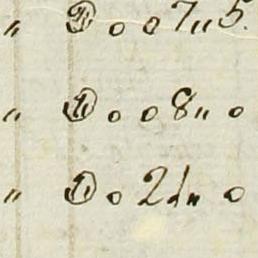 " 0 0 7 " 5.
" 0 0 8 " 0
" 0 21 " 0